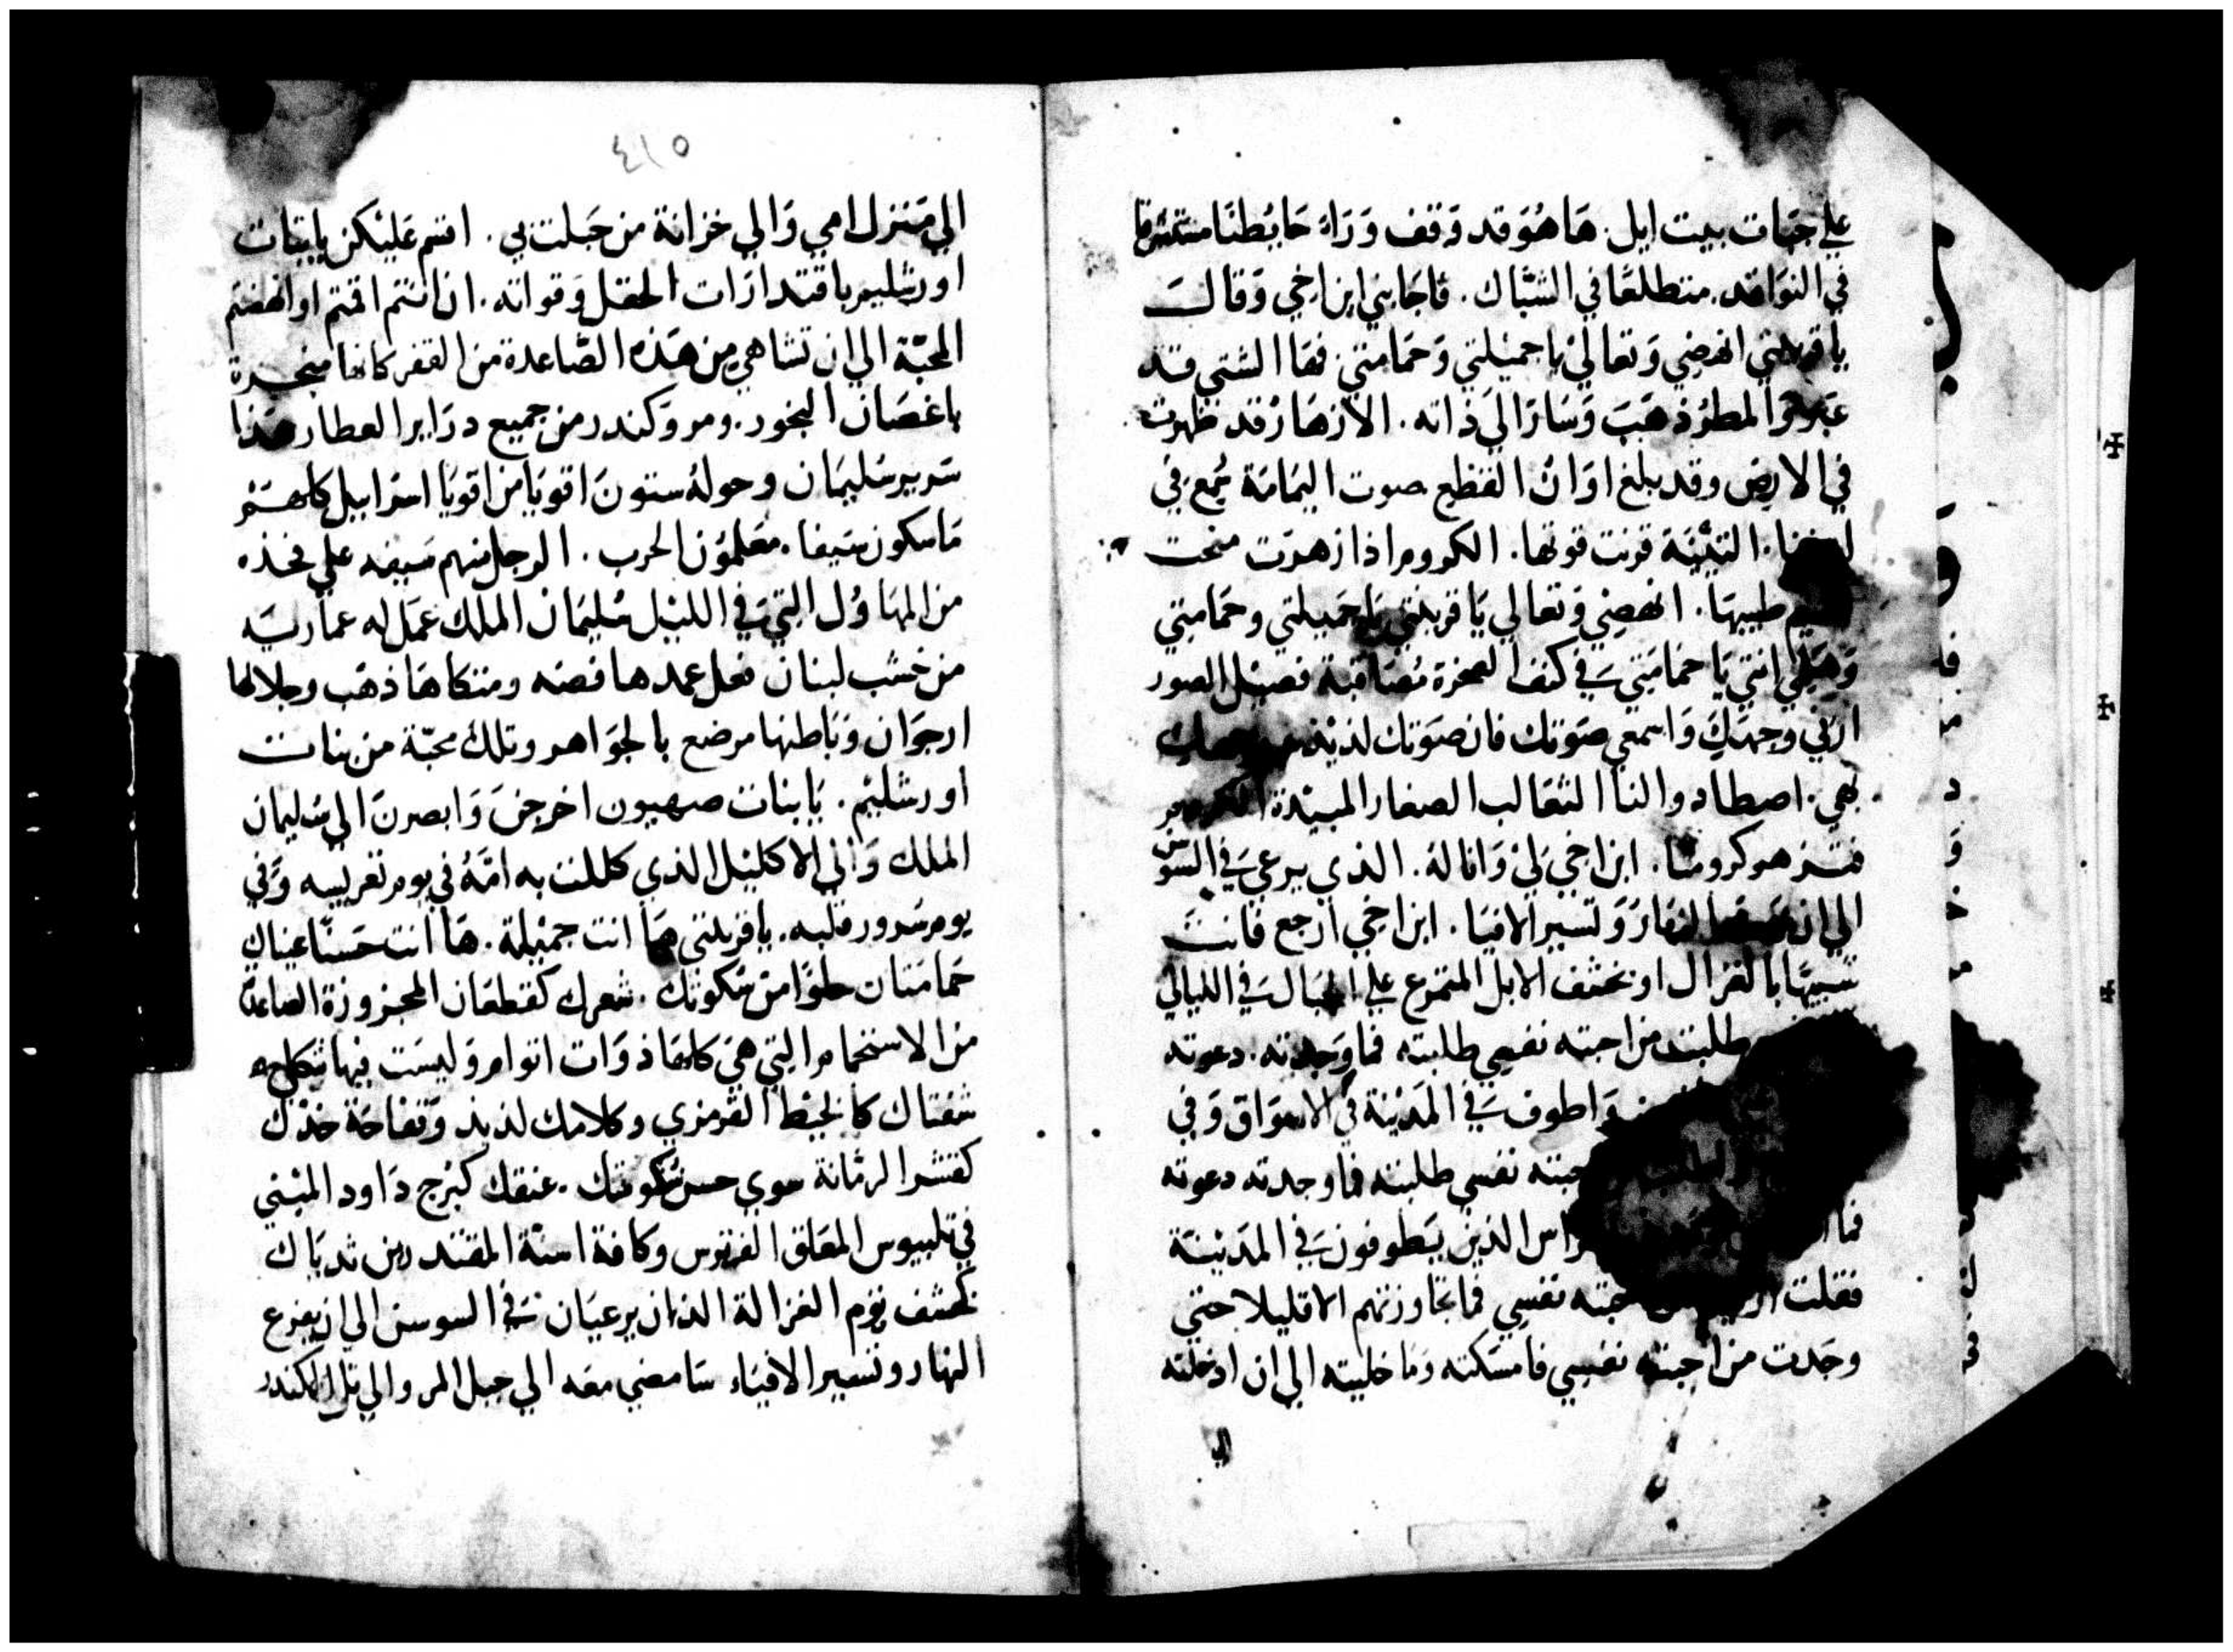 علي جبات بيت ايل. هَا هُوَ قد وَقف وَرَاءَ حَايُطنَا مستشرقا
في النوَافد. متطلعًا في الشبَّاك. فاجَابني ابن اخي وَقالتَ
يا قريبتي انهضِي وَتعَالي يا جميْلتي وَحمَامتي فهَا الشتي قد
عَبر وَالمطرُ ذهَبَ وَسَارَ الي ذاته. الازهَارُ قد ظهرت
في الارض وقد بلغ اوَانُ القطِع صوت اليمَامَة سُمِع في
التيْنَة قرنت قوتها. الكروم اذا ازهرَت منحت
طيبهَا. انهضِي وَتعالي يَا قريبتي يَا جَميلتي وحمَامتي
وَهَلمي انتي يَا حمَامَتِي في كنف الصخرة مُصَاقبة فصيْل الصور
ارني وجهَكِ وَاسمعي صَوتك فان صَوتك لذيْذ
بهي. اصطادوا لنا الثعَالب الصغار المبيْدة الكروم
كرومنا. ابن اخي لي وَانا لهُ. الذي يرعي في السوسن
الي ان النهَارَ وَتسير الافيَا. ابن اخي ارجع فانت
شبيهًا بالغزال او بخشف الايل المتمرع علي الجبَال في الليالي
طلبت من احبته نفسِي طلبته فما وَجدته. دعوته
وَاطوف في المَديْنة في الاسوَاق وَفي
احبته نفسي طلبته فما وجدته دعوته
فما الذيْن يَطوفون في المَديْنة
فقلت نفسِي فما تجَاوزتهم الا قليلا حتي
وجَدت من احبته نفسِي فامسَكته وَما خليته الي ان ادخلته
الي
٤١٥
الي مَنزل امي وَالي خزانة من حَبلت بي. اقسم عَليْكن يا بنات
اورشليم باقتدارَات الحقل وَقواته. ان انتم اقمتم او انهضتم
المحبّة الي ان تشا هي من هَذه الصَّاعدة من القفر كانها متبخرة
باغصَان البخور. ومر وَكندر من جميع درَاير العطار هَذا
سَرير سُليمَان وحولهُ ستونَ اقويَا من اقويَا اسرَاييل كلهَم
مَاسكون سَيفا. معَلموُن الحرب. الرجل منهم سَيفه علي فخذه
من المهَاوُل التي في الليْل سُليمَان الملك عمَل له عمَاريَه
من خشب لبنان فعل عمدها فضه ومتكاهَا ذهَب وجلالها
ارجوَان وَبَاطنها مرضع بالجوَاهر وتلك محبّة من بنات
اورشليْم. يَا بنات صهيون اخرجنَ وَابصرنَ الي سُليمان
الملك وَالي الاكليْل الذي كللت به امَّهُ في يوم تعريسه وَفي
يوم سُرور قلبه. يا قريبتي هَا انت جميْلة. هَا انت حَسنَّا عيناك
حَمامتان خلوًا من سُكوتك. شعرك كقطعَان المجزوزة الصاعدة
من الاستحمام التي هيَ كلهَا ذوَات اتوام وَليسَت فيها ثكلي
شفتاك كالخيْط القرمزي وكلامك لذيذ وَتفاحَة خدّك
كقشر الرمَّانة سوي حسن سُكوتك. عنقك كبُرج دَاود المبْني
في تلبيوس المعَلق الف ترس وكافة اسنّة المقتدرين ثديَاك
كخشف توم الغزالة اللذان يرعيَان في السوسن الي ان يفرغ
النهار وتسير الافيَاء سَامضي معَه الي جبل المر والي تل الكندر